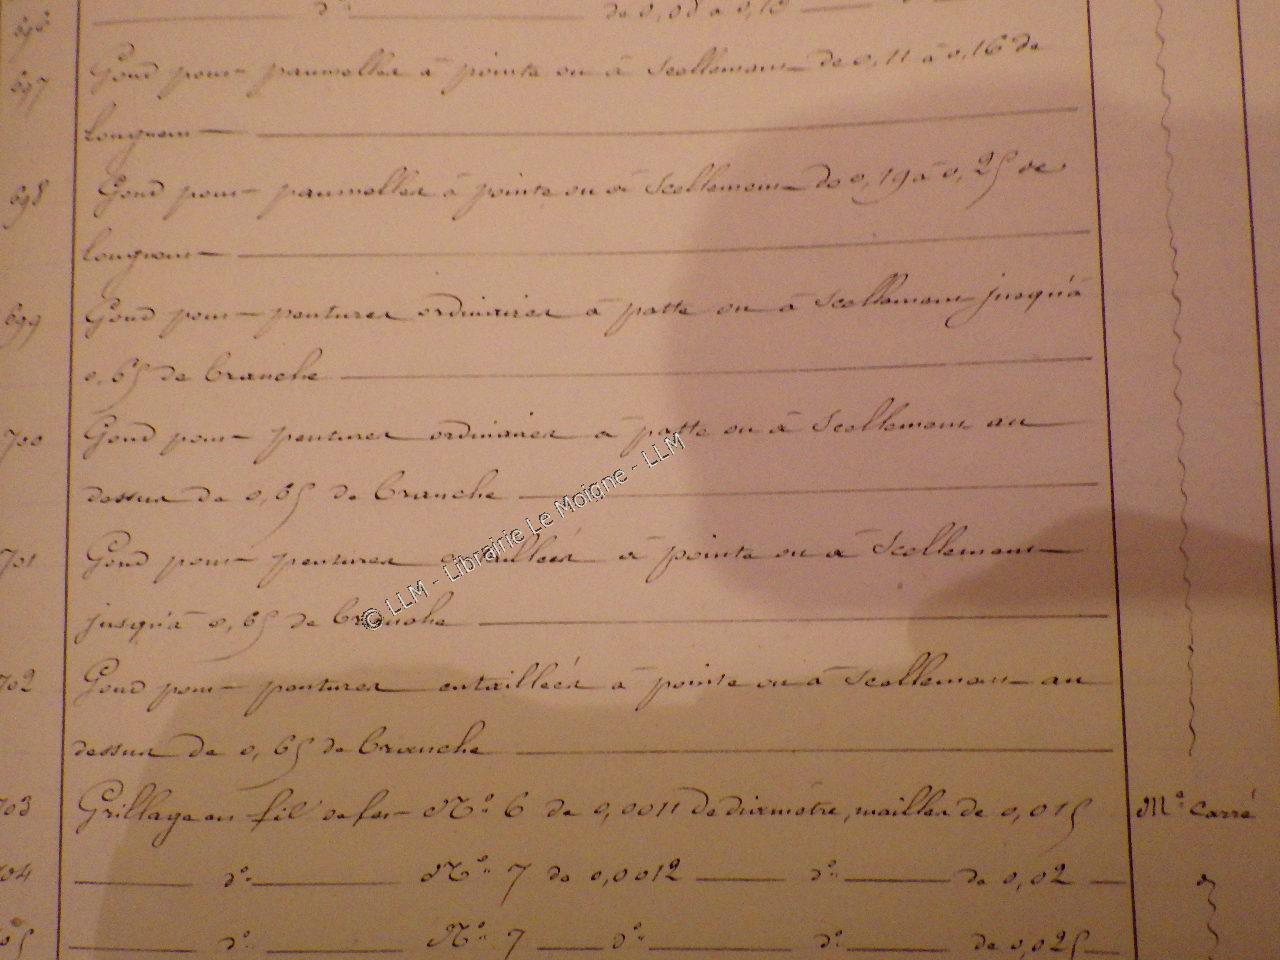 696 d° de 0,08 à 0,13
697 Gond pour paumelles à pointe ou à scellement de 0,11 à 0,16 de
longueur
698 Gond pour paumelles à pointe ou à scellement de 0,19 à 0,25 de
longueur
699 Gond pour pentures ordinaires à patte ou à scellement jusqu'à
0,65 de branche
700 Gond pour pentures ordinaires à patte ou à scellement au
dessus de 0,65 de branche
701 Gond pour pentures entaillées à pointe ou à scellement
jusqu'à 0,65 de branche
702 Gond pour pentures entaillées à pointe ou à scellement au
dessus de 0,65 de branche
703 Grillage en fil de fer N° 6 de 0,0011 de diamètre, mailles de 0,015 M° Carré
704 d° N° 7 de 0,0012 d° de 0,02
705 d° N° 7 d° d° de 0,025
© LLM - Librairie Le Moigne - LLM